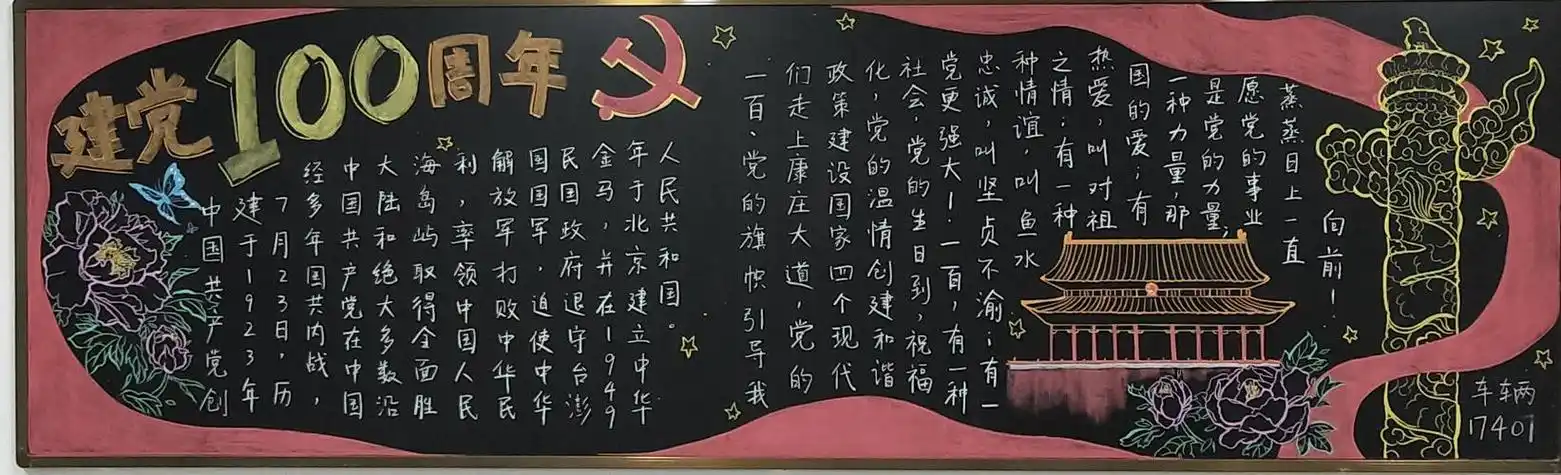 建党100周年
中国共产党创
建于1923年
7月23日，历
经多年国共内战，
中国共产党在中国
大陆和绝大多数沿
海岛屿取得全面胜
利，率领中国人民
解放军打败中华民
国国军，迫使中华
民国政府退守台澎
金马，并在1949
年于北京建立中华
人民共和国。
一百、党的旗帜引导我
们走上康庄大道，党的
政策建设国家四个现代
化，党的温情创建和谐
社会，党的生日到，祝福
党更强大！一百，有一种
忠诚，叫坚贞不渝；有一
种情谊，叫鱼水
之情；有一种
热爱，叫对祖
国的爱；有
一种力量那
是党的力量，
愿党的事业
蒸蒸日上一直
向前！
车辆
17401